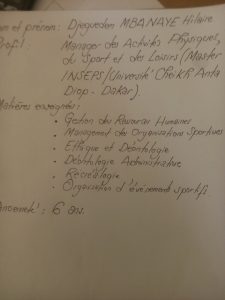 om et prénom : Djeguedom MBANAYE Hilaire
Profil : Manager des Activités Physiques,
du Sport et des Loisirs (Master
INSEPS/Université Cheikh Anta
Diop - Dakar)
Matières enseignées :
• Gestion des Ressources Humaines
• Management des Organisations Sportives
• Ethique et Déontologie
• Déontologie Administrative
• Récréologie
• Organisation d'événement sportifs
Ancienneté : 6 ans.